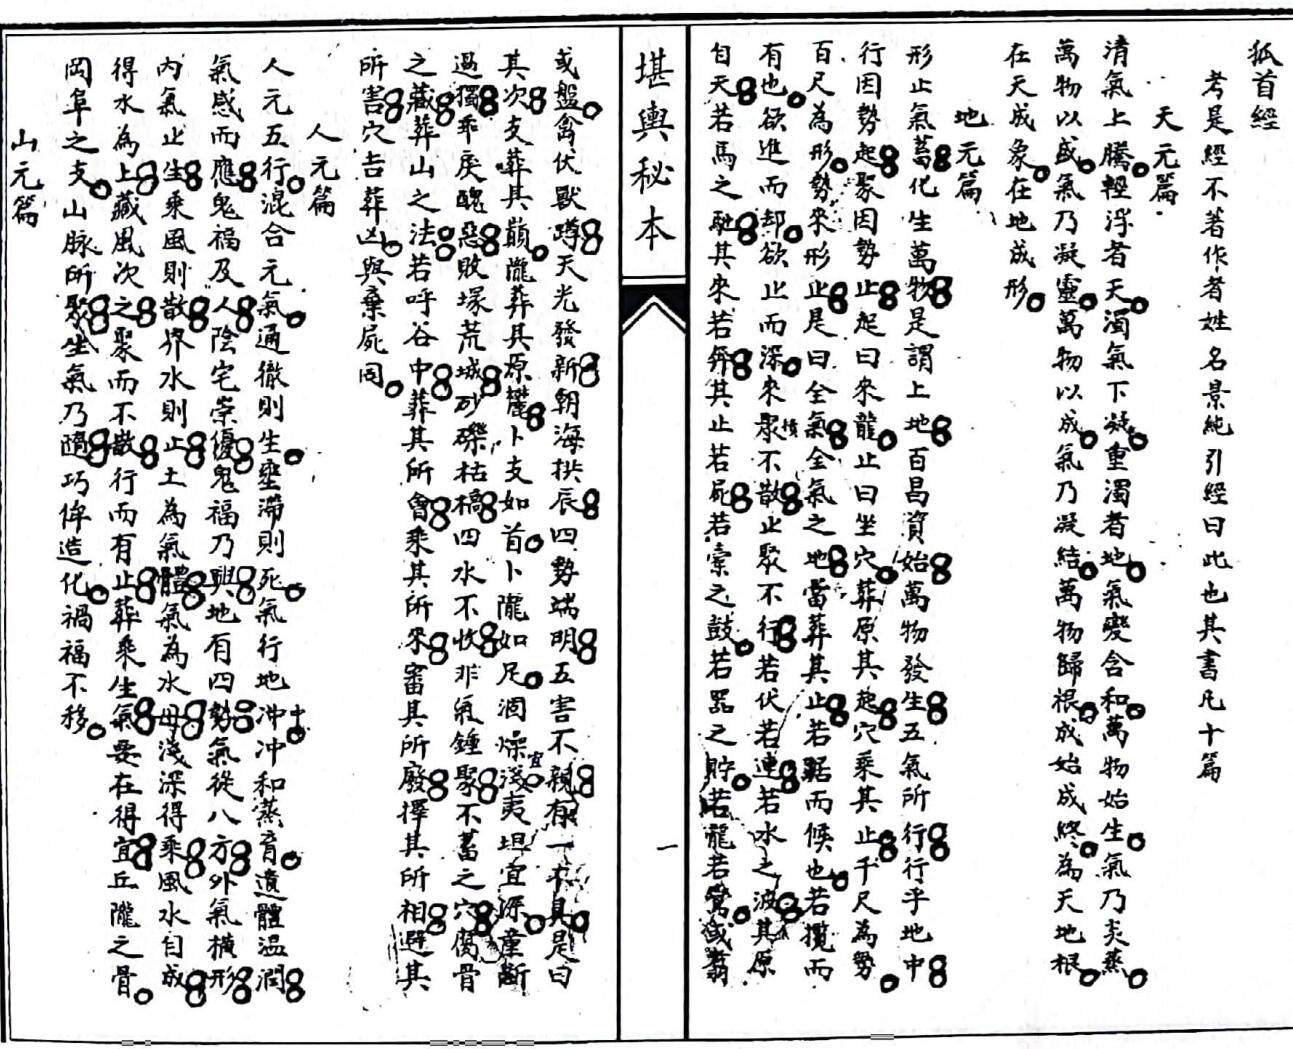 狐首經
考是經不著作者姓名景純引經曰此也其書凡十篇
天元篇
清氣上騰輕浮者天濁氣下凝重濁者地氣變含和萬物始生氣乃炎蒸
萬物以盛氣乃凝靈萬物以成氣乃凝結萬物歸根成始成終為天地根
在天成象在地成形
地元篇
形止氣蓄化生萬物是謂上地百昌資始萬物發生五氣所行行乎地中
行因勢起聚因勢止起曰來龍止曰坐穴葬原其起穴乘其止千尺為勢
百尺為形勢來形止是曰全氣全氣之地當葬其止若踞而候也若攬而
有也欲進而卻欲止而深來聚不散止聚不行若伏若連若水之波其原
自天若馬之馳其來若奔其止若屍若橐之鼓若器之貯若龍若鸞或翥
堪輿秘本
一
或盤禽伏獸蹲天光發新朝海拱辰四勢端明五害不親有一不具是曰
其次支葬其巔隴葬其原麓卜支如首卜隴如足涸燥宜淺夷坦宜深童斷
過獨乖戾醜惡敗塚荒城砂礫枯槁四水不收非氣鍾聚不蓄之穴腐骨
之藏葬山之法若呼谷中葬其所會乘其所來審其所廢擇其所相避其
所害穴吉葬凶與棄屍同
人元篇
人元五行混合元氣通徹則生壅滯則死氣行地中沖冲和蒸育遺體温潤
氣感而應鬼福及人陰宅崇優鬼福乃興地有四勢氣從八方外氣橫形
內氣止生乘風則散界水則止土為氣體氣為水母淺深得乘風水自成
得水為上藏風次之聚而不散行而有止葬乘生氣要在得宜丘隴之骨
岡阜之支山脉所聚生氣乃隨巧侔造化禍福不移
山元篇